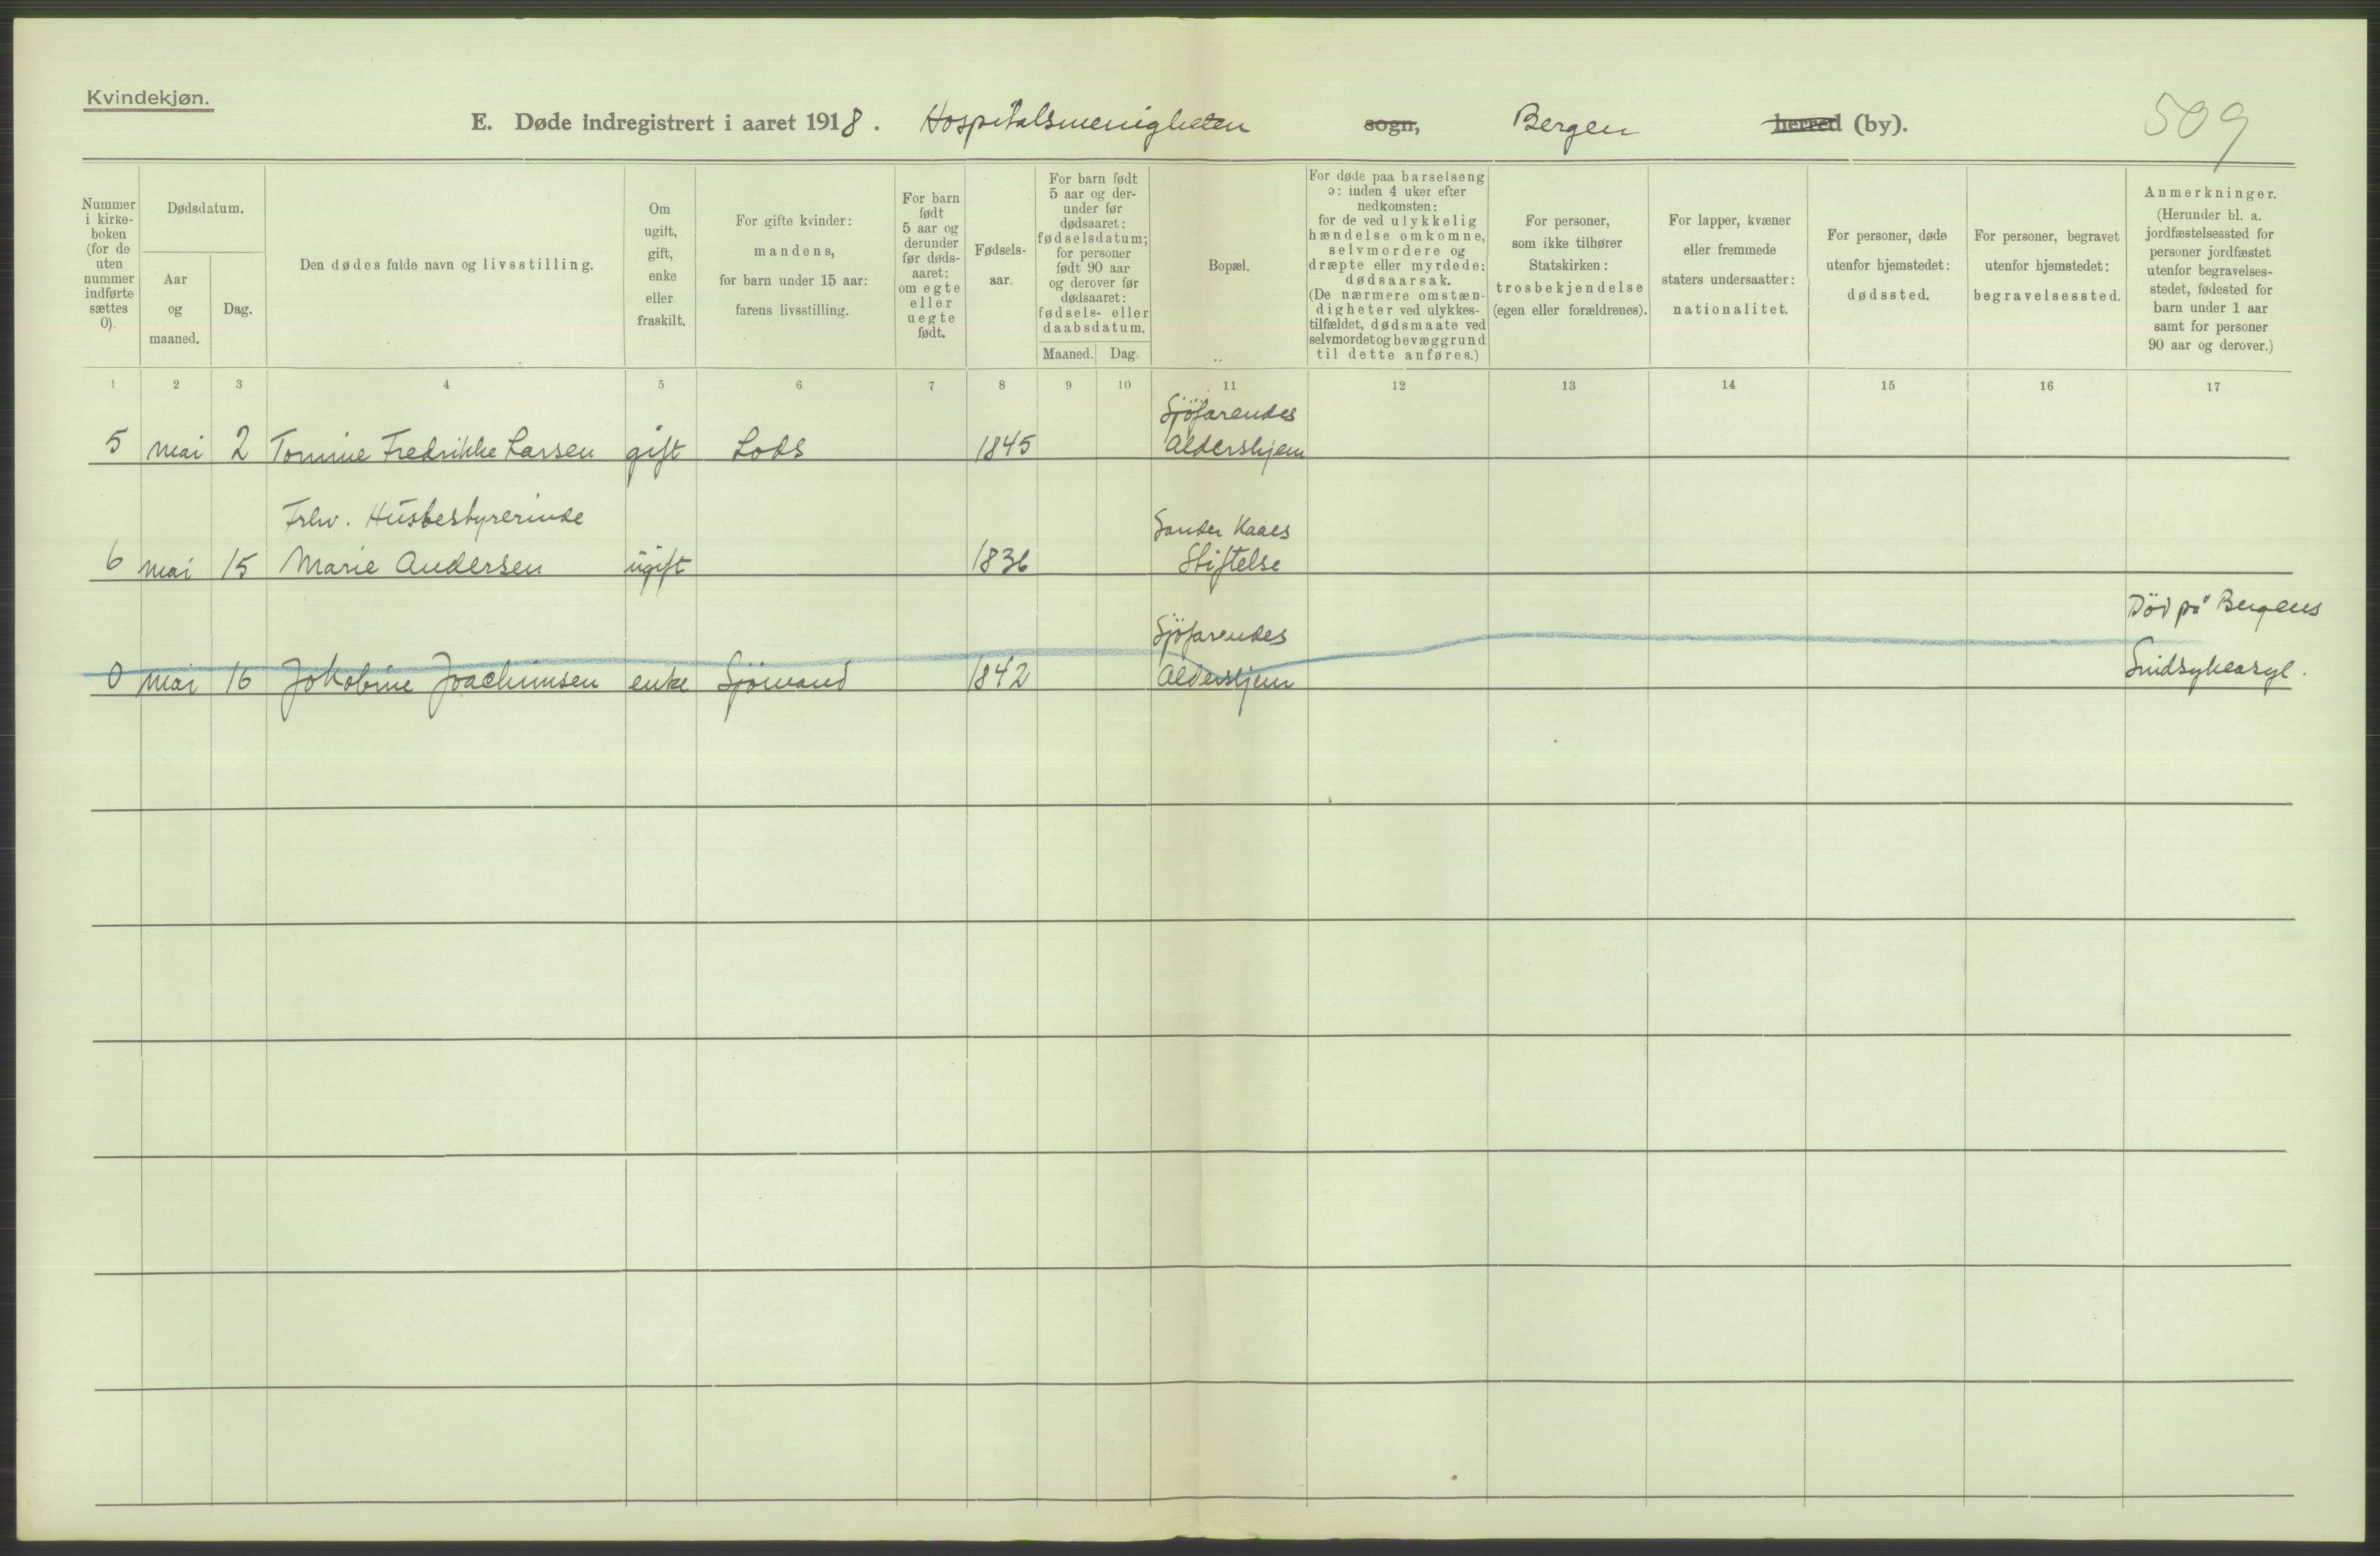 Kvindekjøn.
E. Døde indregistrert i aaret 1918. Hospitalsmenigheten sogn, Bergen herred (by).
509
Nummer
i kirke-
boken
(for de
uten
nummer
indførte
sættes
0).
Dødsdatum.
Aar
og
maaned.
Dag.
Den dødes fulde navn og livsstilling.
Om
ugift,
gift,
enke
eller
fraskilt.
For gifte kvinder:
mandens,
for barn under 15 aar:
farens livsstilling.
For barn
født
5 aar og
derunder
før døds-
aaret:
om egte
eller
uegte
født.
Fødsels-
aar.
For barn født
5 aar og der-
under før
dødsaaret:
fødselsdatum;
for personer
født 90 aar
og derover før
dødsaaret:
fødsels- eller
daabsdatum.
Maaned. Dag.
Bopæl.
For døde paa barselseng
ɔ: inden 4 uker efter
nedkomsten:
for de ved ulykkelig
hændelse omkomne,
selvmordere og
dræpte eller myrdede:
dødsaarsak.
(De nærmere omstæn-
digheter ved ulykkes-
tilfældet, dødsmaate ved
selvmordet og bevæggrund
til dette anføres.)
For personer,
som ikke tilhører
Statskirken:
trosbekjendelse
(egen eller forældrenes).
For lapper, kvæner
eller fremmede
staters undersaatter:
nationalitet.
For personer, døde
utenfor hjemstedet:
dødssted.
For personer, begravet
utenfor hjemstedet:
begravelsessted.
Anmerkninger.
(Herunder bl. a.
jordfæstelsessted for
personer jordfæstet
utenfor begravelses-
stedet, fødested for
barn under 1 aar
samt for personer
90 aar og derover.)
1 2 3 4 5 6 7 8 9 10 11 12 13 14 15 16 17
Sjöfarendes
5 mai 2 Tomine Fredrikke Larsen gift Lods 1845 Aldershjem
Frhv. Husbestyrerinde Sander Kaaes
6 mai 15 Marie Andersen ugift 1836 Stiftelse
Sjöfarendes Död på Bergens
0 mai 16 Jakobine Joachimsen enke Sjömand 1842 Aldershjem Sindsykeasyl.